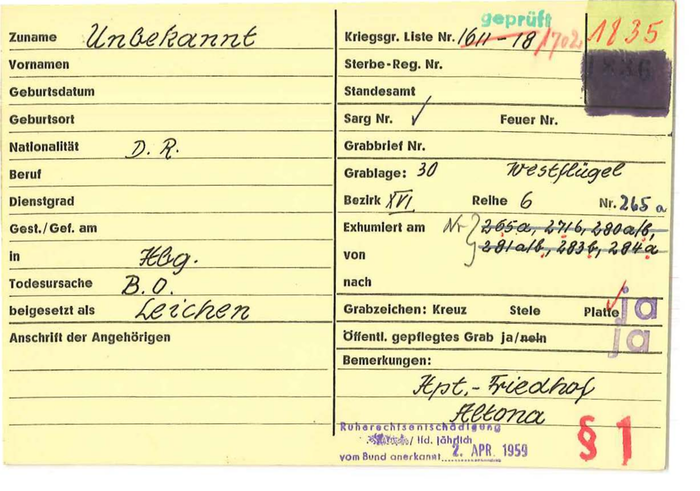 geprüft
Zuname Unbekannt
Vornamen
Geburtsdatum
Geburtsort
Nationalität D. R.
Beruf
Dienstgrad
Gest./Gef. am
in Hbg.
Todesursache B.O.
beigesetzt als Leichen
Anschrift der Angehörigen
Kriegsgr. Liste Nr. 1611-18 1702 1835
Sterbe-Reg. Nr.
Standesamt
Sarg Nr. ✓ Feuer Nr.
Grabbrief Nr.
Grablage: 30 Westflügel
Bezirk XVI Reihe 6 Nr. 265a
Exhumiert am Nr 265a, 271b, 280a/b,
von 281a/b, 283b, 284a
nach
Grabzeichen: Kreuz Stele Platte ja
Öffentl. gepflegtes Grab ja/nein ja
Bemerkungen:
Hpt.-Friedhof
Altona
Ruherechtsentschädigung
/ lfd. jährlich
vom Bund anerkannt 2. APR. 1959
§ 1